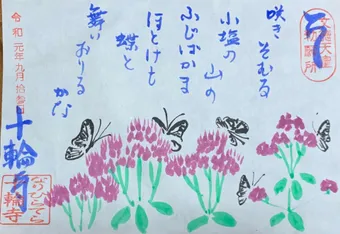 咲きそむる
小塩の山の
ふじばかま
ほとけも
蝶と
舞いおりる
かな
令和元年九月拾
十輪寺
なりひらてら
十輪寺